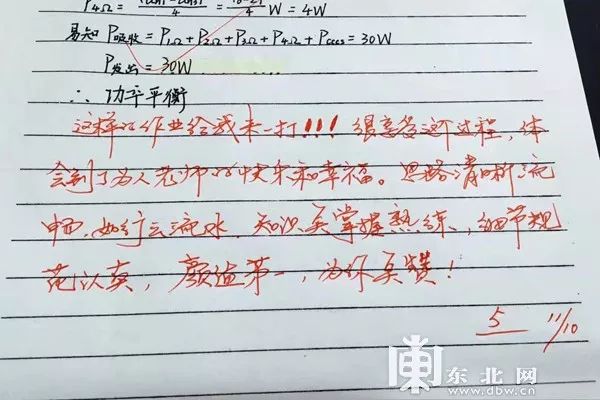 P4Ω = 4 = 4 W = 4W
易知 P吸收 = P1Ω + P2Ω + P3Ω + P4Ω + Pcccs = 30W
P发出 = 30W
∴ 功率平衡
这样的作业给我来一打!!! 很享受这个过程,体
会到了为人老师的快乐和幸福。思路清晰流
畅,如行云流水,知识点掌握熟练,细节规
范认真,颜值第一,为你点赞!
5 11/10
东北网
www.dbw.cn